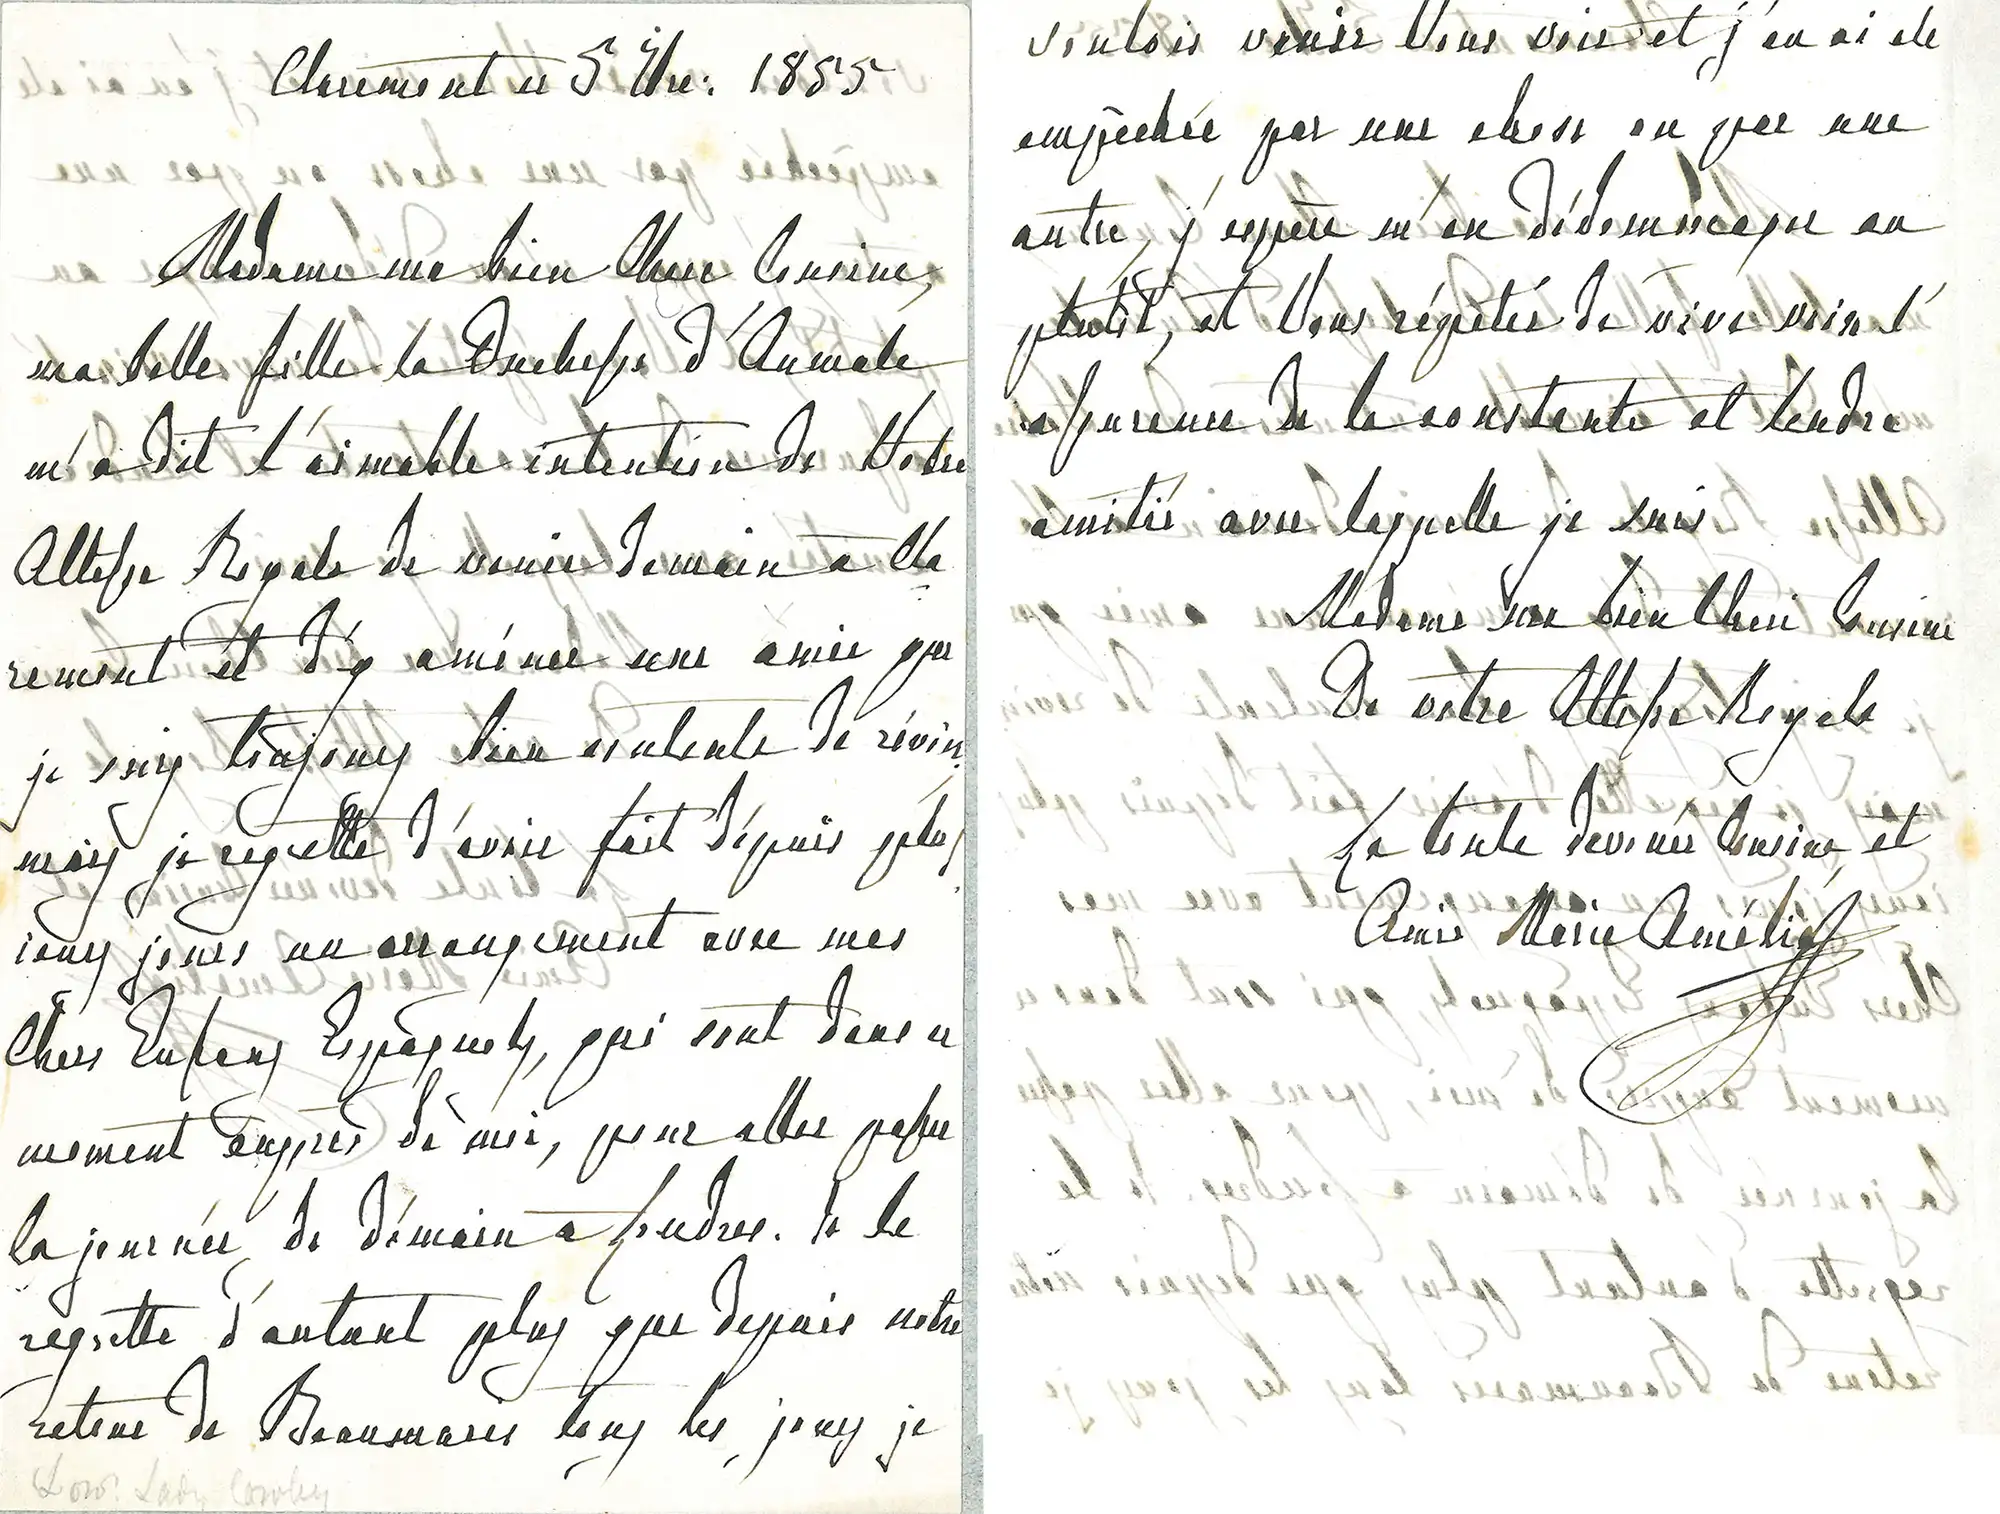 Claremont ce 5 7bre: 1855
Madame ma bien Chere Cousine,
ma belle fille la Duchesse d'Aumale
m'a dit l'aimable intention de Votre
Altesse Royale de venir demain a Cla
remont et d'y aménér une amie que
je suis toujours bien contente de révoir
mais je regrette d'avoir fait dépuis plus
ieurs jours un arrangement avec mes
Chers Enfans Espagnols, qui sont dans ce
moment auprès de moi, pour aller passer
la journée de démain a Londres. Je le
regrette d'autant plus que depuis notre
retour de Beaumaris tous les jours je
voulois venir Vous voir et j'en ai été
empechée par une chose ou par une
autre, j'espère m'en dédommager au
plutôt, et Vous répéter de vive voix l'
assurance de la constante et tendre
amitié avec laquelle je suis
Madame ma bien Chere Cousine
De votre Altesse Royale
La toute devouée Cousine et
Amie Marie Amélie
Lady Cowley